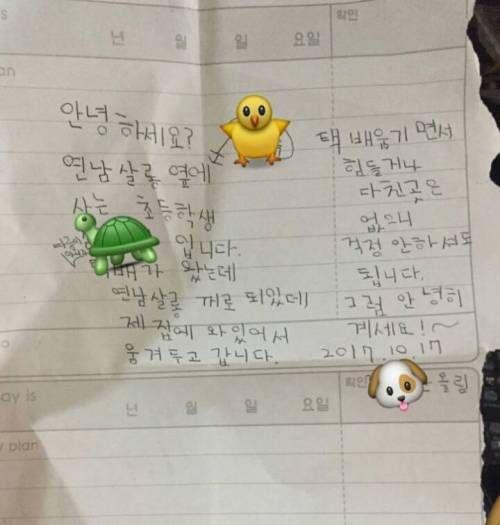 s
확인
년 일 일 요일
an
안녕하세요?
연남살롱 옆에
사는 초등학생
입니다.
배가 왔는데
연남살롱 꺼로 되있는데
제 집에 와있어서
움겨두고 갑니다.
택배움기면서
힘들거나
다친곳은
없으니
걱정 안하셔도
됩니다.
그럼 안녕히
계세요!~
2017.10.17
올림
o
ay is
확인
년 일 일 요일
y plan